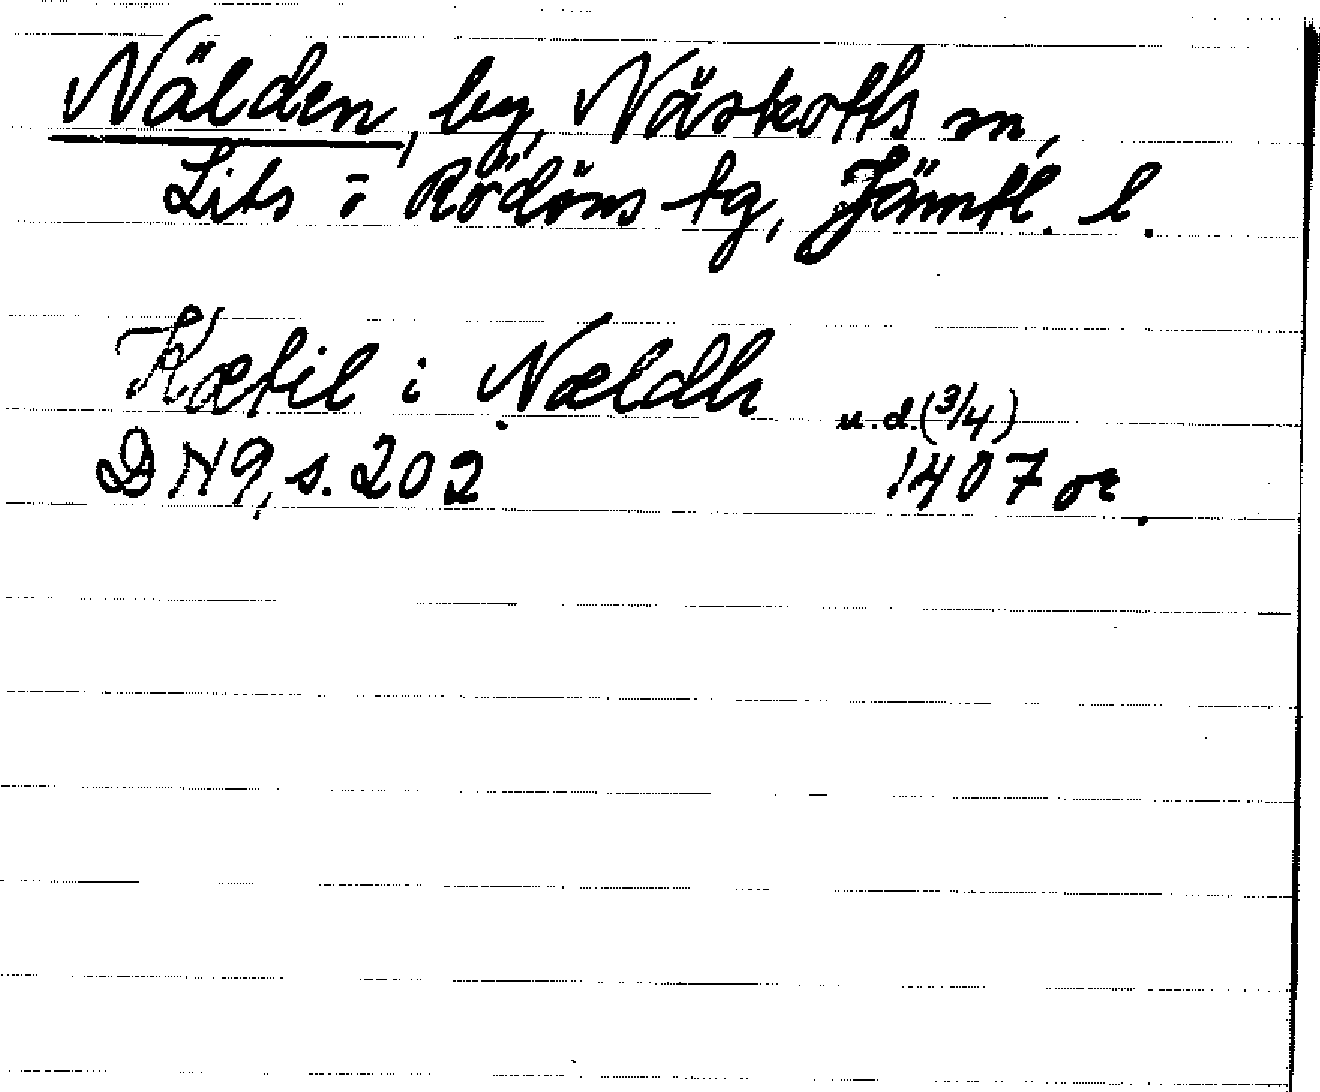 Nälden, by, Näskotts sn,
Lits o Rödöns tg, Jämtl. l.
Kætil i Nældh
u.d. (3/4)
DN 9, s. 202 1407 or.